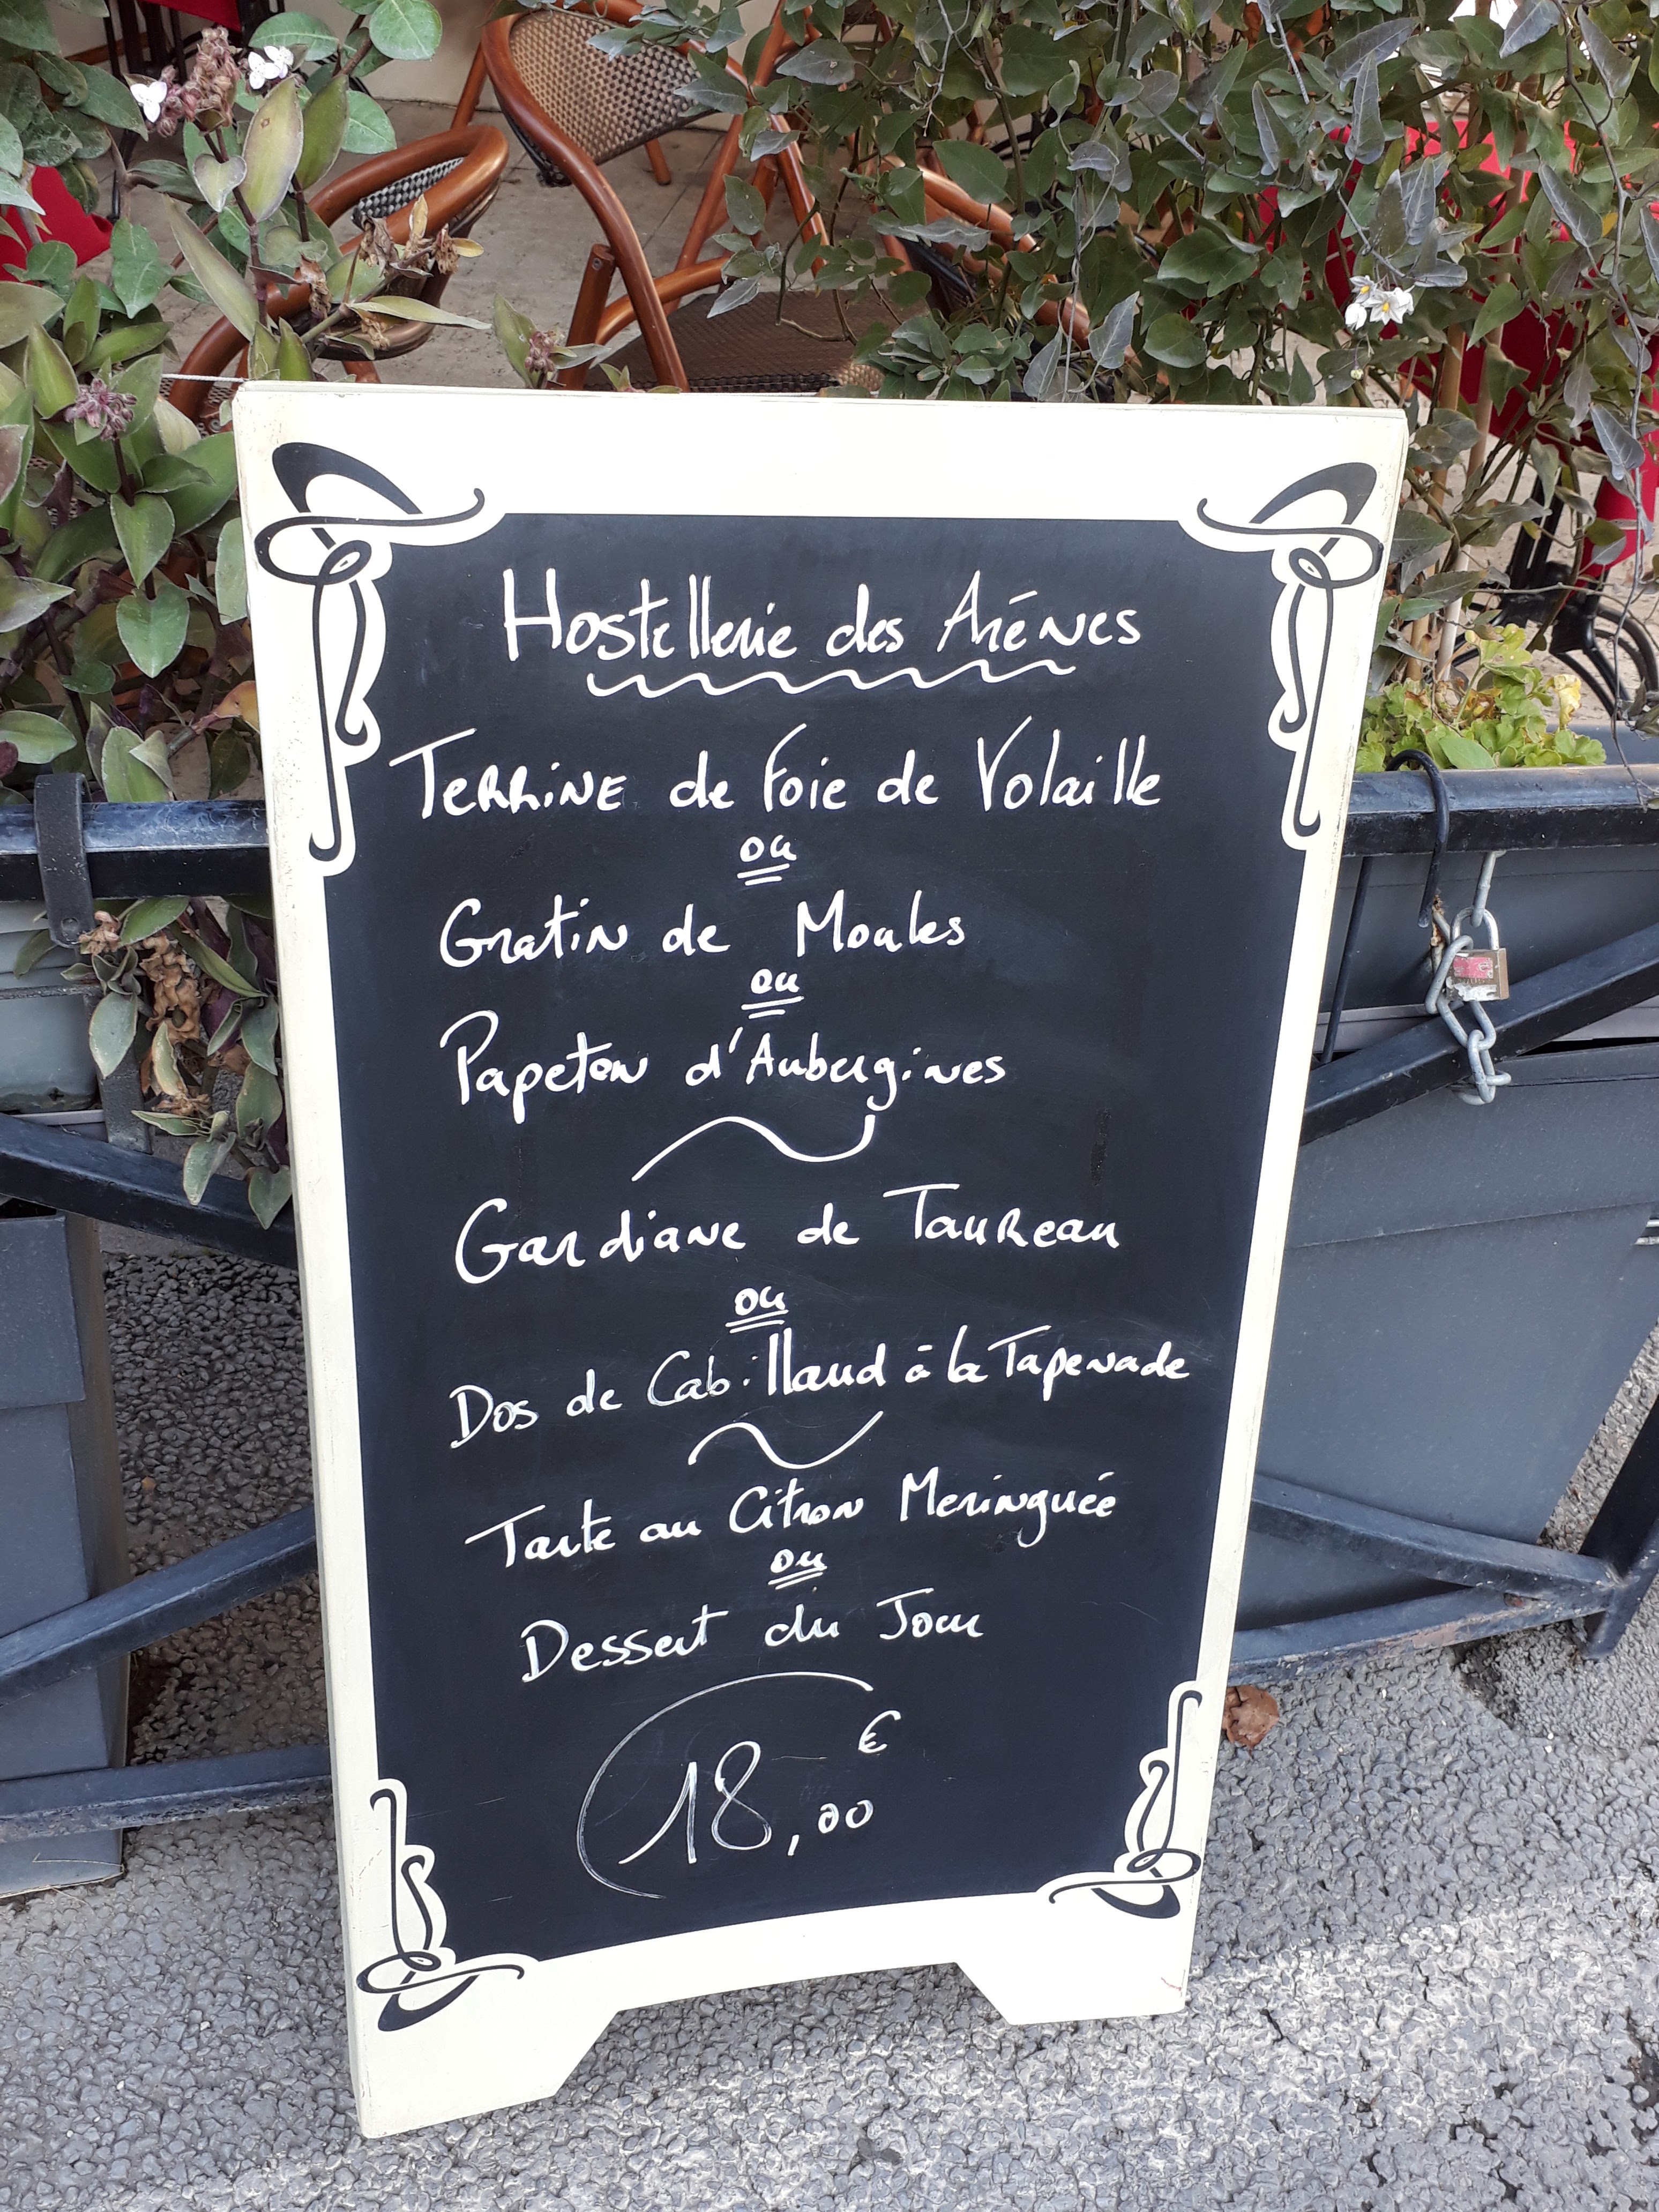 Hostellerie des Arènes
Terrine de Foie de Volaille
ou
Gratin de Moules
ou
Papeton d'Aubergines
Gardiane de Taureau
ou
Dos de Cabillaud à la Tapenade
Tarte au Citron Meringuée
ou
Dessert du Jour
18,00 €